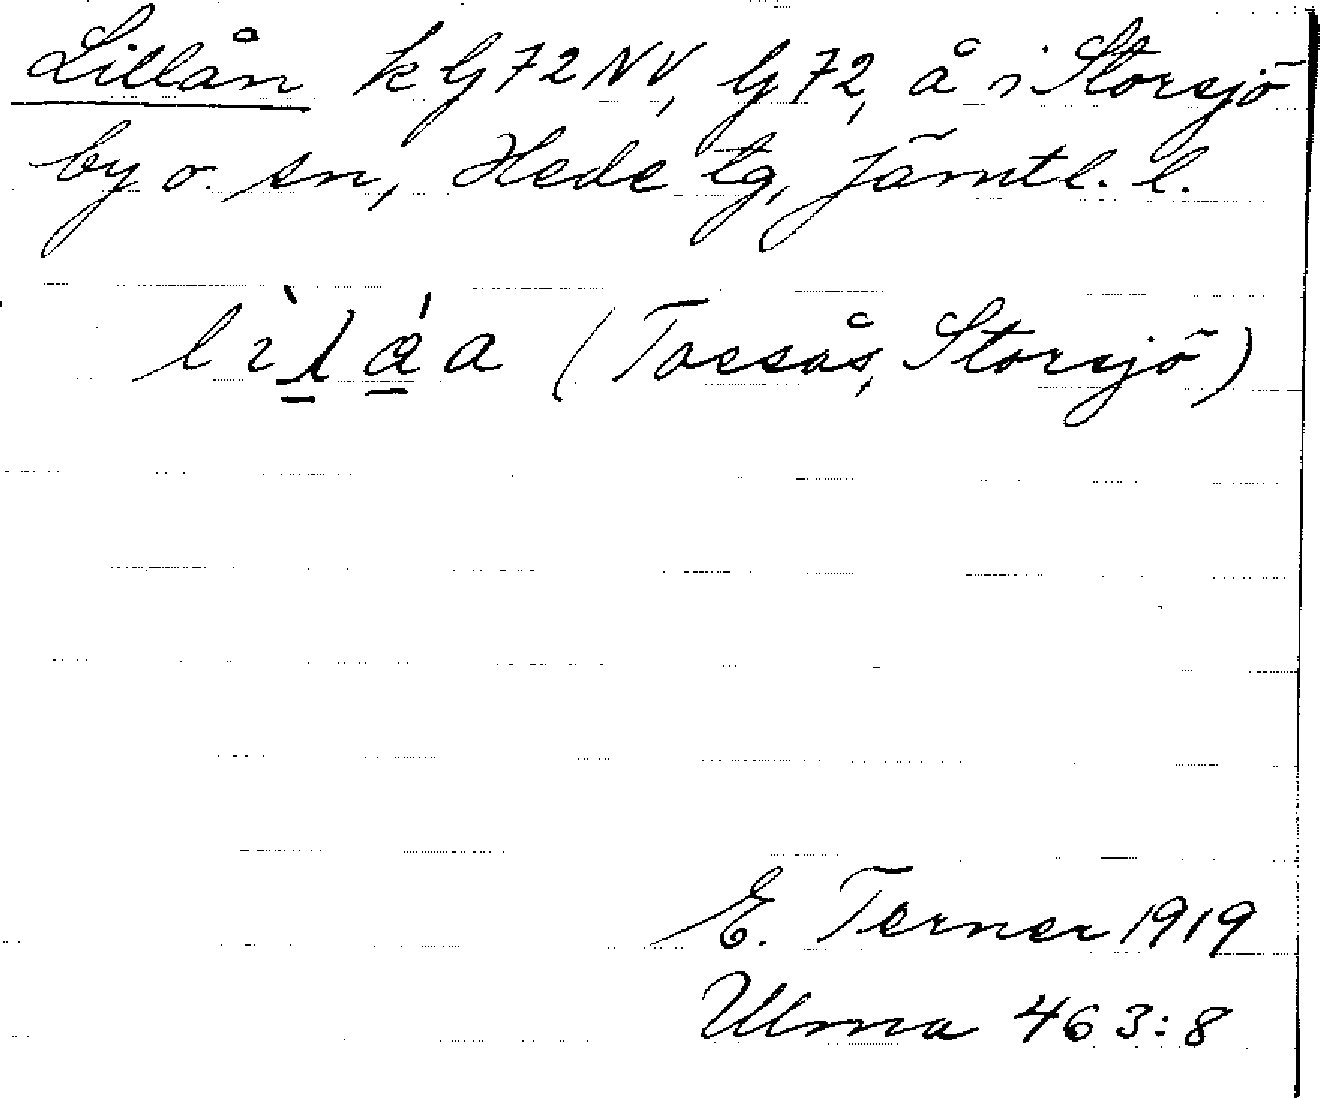 Lillån k lj 72 NV, lj 72, å i Storsjö
by o. sn, Hede tg, Jämtl. l.
(Tossås, Storsjö)
E. Terner 1919
Ulma 463:8